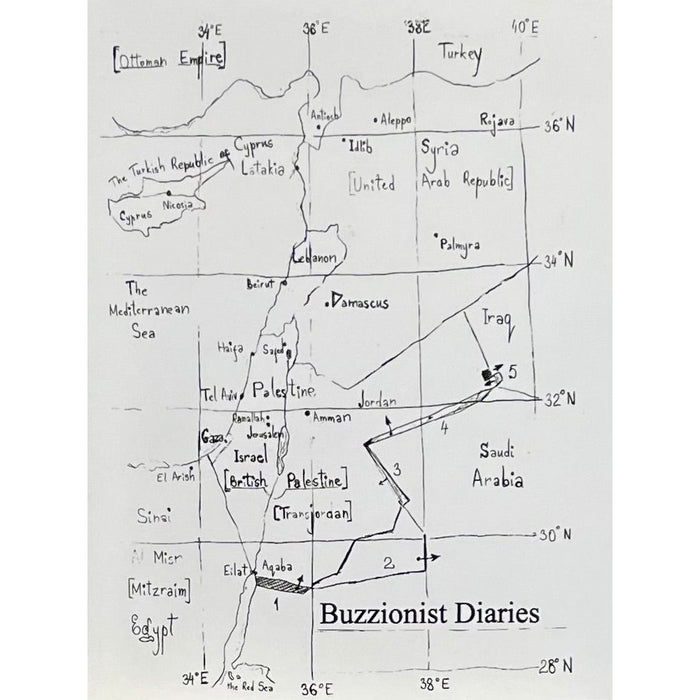 34°E 36°E 38E 40°E
[Ottoman Empire]
Turkey
Antioch
Aleppo
Rojava
36°N
Idlib
The Turkish Republic of Cyprus
Latakia
Syria
[United Arab Republic]
Nicosia
Cyprus
Palmyra
Lebanon
34°N
Beirut
The
Mediterranean
Sea
Damascus
Iraq
Haifa
Safed
5
Tel Aviv
Palestine
Jordan
32°N
Ramallah
Amman
4
Gaza
Jerusalem
Israel
Saudi
Arabia
3
El Arish
[British Palestine]
Sinai
[Transjordan]
30°N
Al Misr
2
Eilat
Aqaba
[Mitzraim]
1
Buzzionist Diaries
Egypt
28°N
34°E
the Red Sea
36°E
38°E